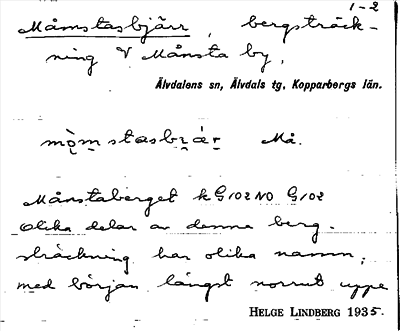 1-2
Måmstasbjärr, bergsträck-
ning V Månsta by,
Älvdalens sn, Älvdals tg, Kopparbergs län.
Må.
Månstaberget k G102 NO G102
Olika delar av denna berg-
sträckning har olika namn;
med början längst norrut uppe
HELGE LINDBERG 1935.